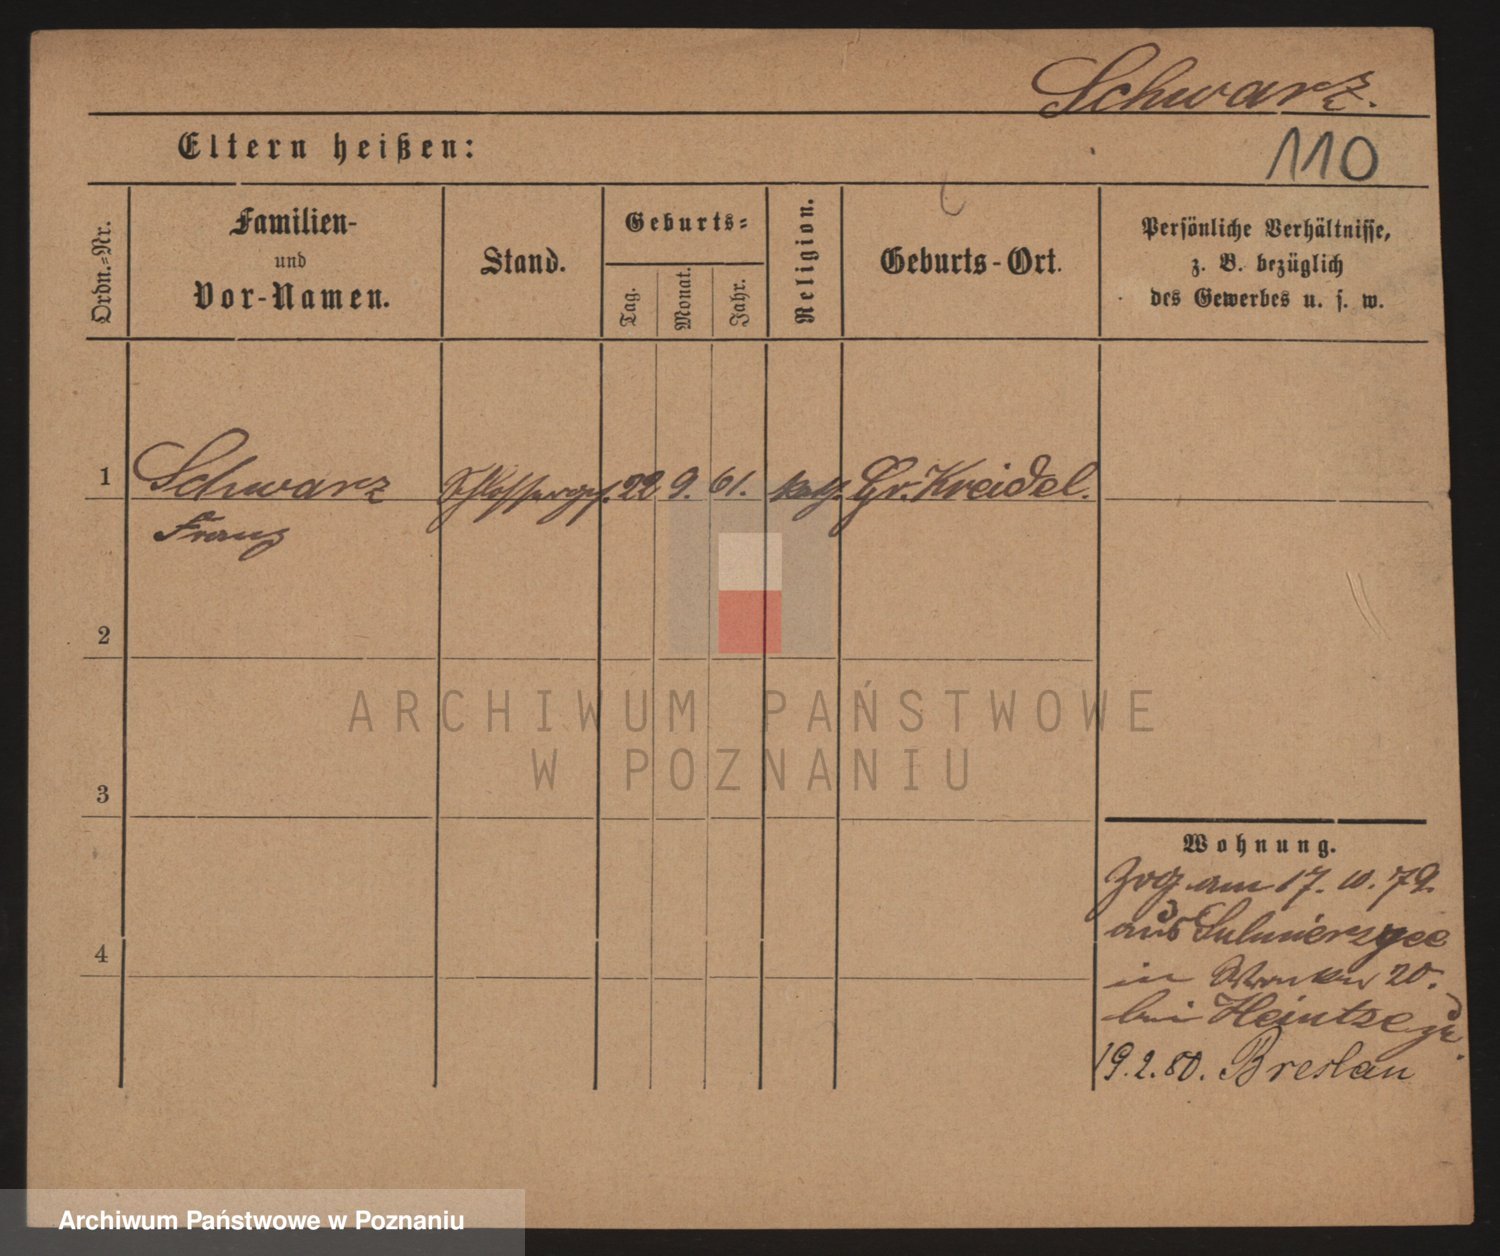 Schwarz.
Eltern heißen:
110
Ordn.=Nr.
Familien-
und
Vor-Namen.
Stand.
Geburts=
Tag.
Monat.
Jahr.
Religion.
Geburts-Ort.
Persönliche Verhältnisse,
z. B. bezüglich
des Gewerbes u. s. w.
1
Schwarz Schlosserges. 22 9. 61. kath. Gr. Kreidel.
Franz
2
3
4
Wohnung.
Zog am 17. 10. 79.
aus Sulmierzyce
in 20.
bei Heintze
19. 2. 80. Breslau
ARCHIWUM PAŃSTWOWE
W POZNANIU
Archiwum Państwowe w Poznaniu